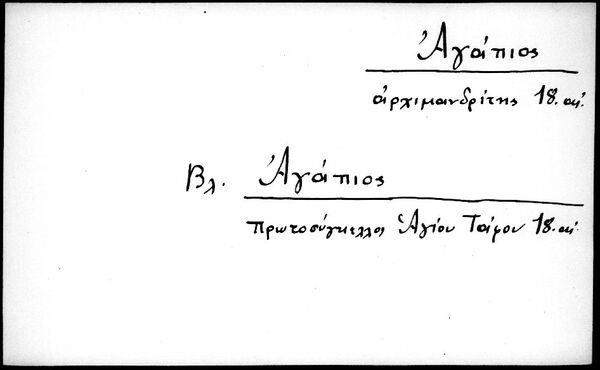 Ἀγάπιος
ἀρχιμανδρίτης 18. αἰ.
Βλ. Ἀγάπιος
Πρωτοσύγκελλος Ἁγίου Τάφου 18. αἰ.